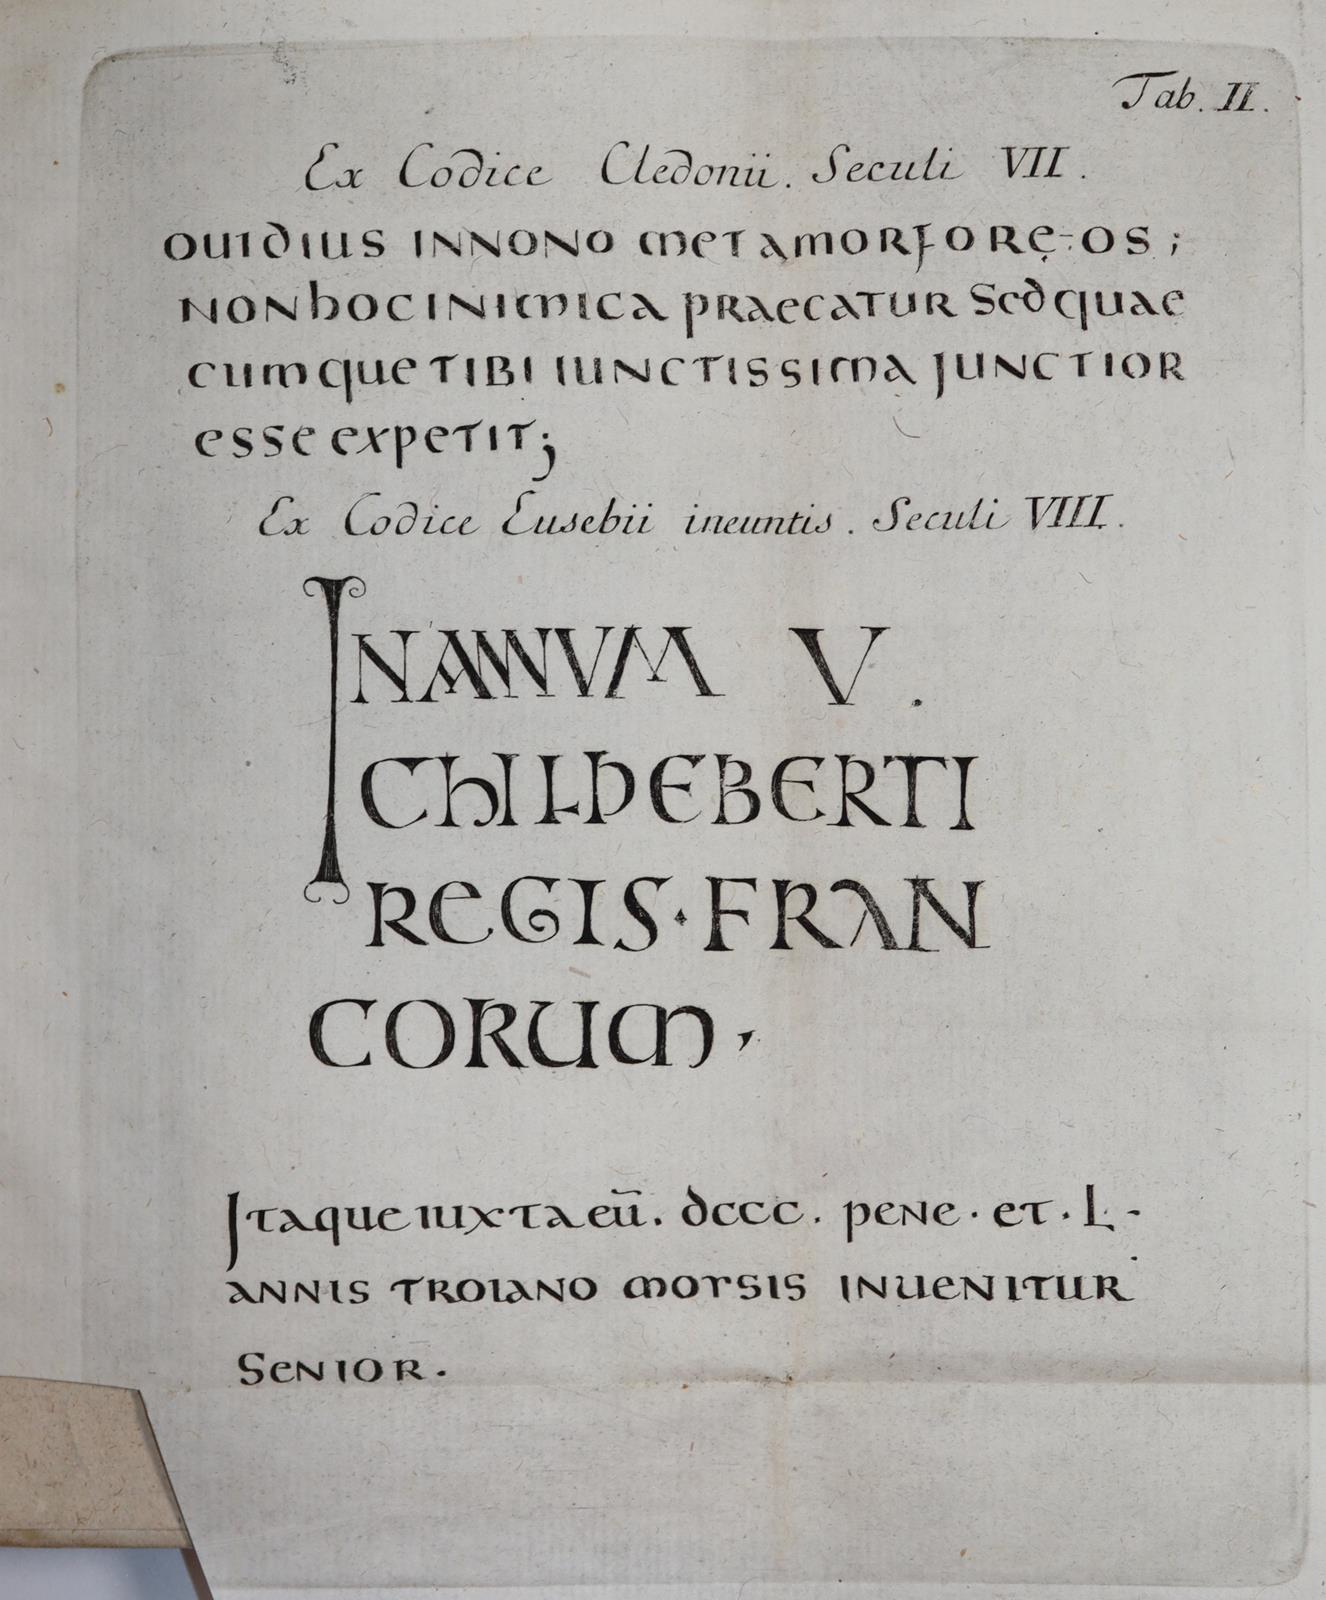 Tab. II.
Ex Codice Cledonii. Seculi VII.
OUIDIUS INNONO METAMORFORĘ-OS;
NON hOC INIMICA PRAECATUR SED QUAE
CUMQUE TIBI IUNCTISSIMA JUNCTIOR
ESSE EXPETIT;
Ex Codice Eusebii ineuntis. Seculi VIII.
IN ANNUM V.
CHILDEBERTI
REGIS · FRAN
CORUM,
Itaque iuxta eū. dccc. pene · et · L -
ANNIS TROIANO MOTSIS INUENITUR
SENIOR.